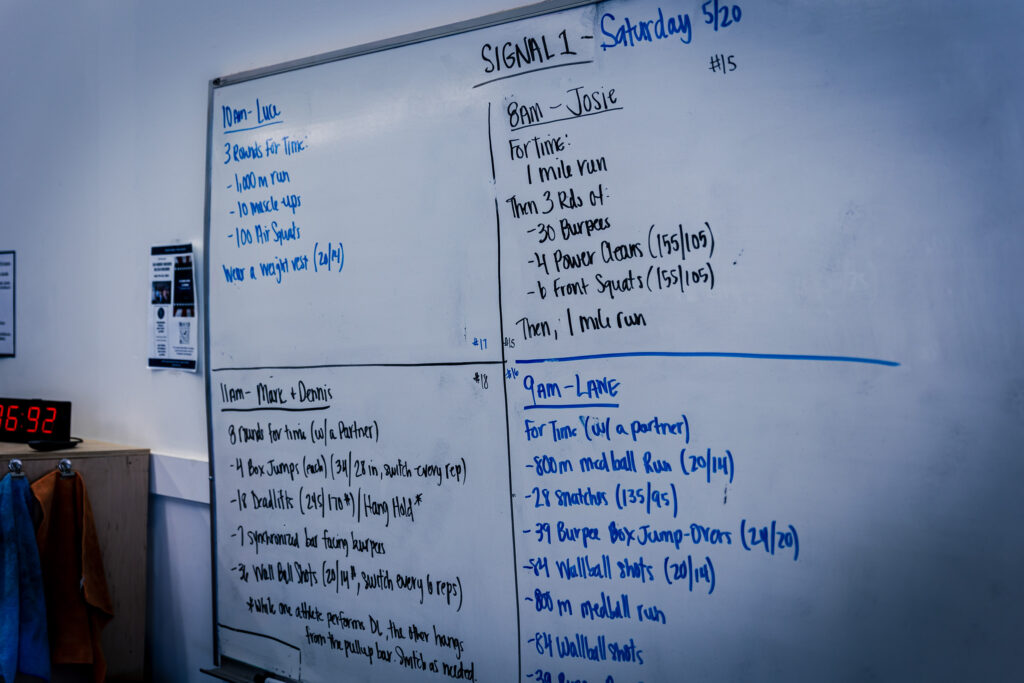 SIGNAL 1 - Saturday 5/20
#15
10am - Luce
3 Rounds For Time:
- 1,000 m run
- 10 muscle-ups
- 100 Air Squats
Wear a weight vest (20/14)
#17
8AM - Josie
For Time:
1 mile run
Then 3 Rds of:
-30 Burpees
-4 Power Cleans (155/105)
-6 Front Squats (155/105)
Then, 1 mile run
#15
11am - Marc + Dennis
#18
8 rounds for time (w/ a Partner)
-4 Box Jumps (each) (34/28 in, switch every rep)
-18 Deadlifts (245/170#) / Hang Hold*
-7 synchronized bar facing burpees
-36 Wall Ball Shots (20/14#, switch every 6 reps)
*While one athlete performs DL, the other hangs
from the pullup bar. Switch as needed.
#16
9AM - LANE
For Time (w/ a partner)
-800m medball Run (20/14)
-28 snatches (135/95)
-39 Burpee Box Jump-Overs (24/20)
-84 Wallball shots (20/14)
-800 m medball run
-84 Wallball shots
-39
6:92